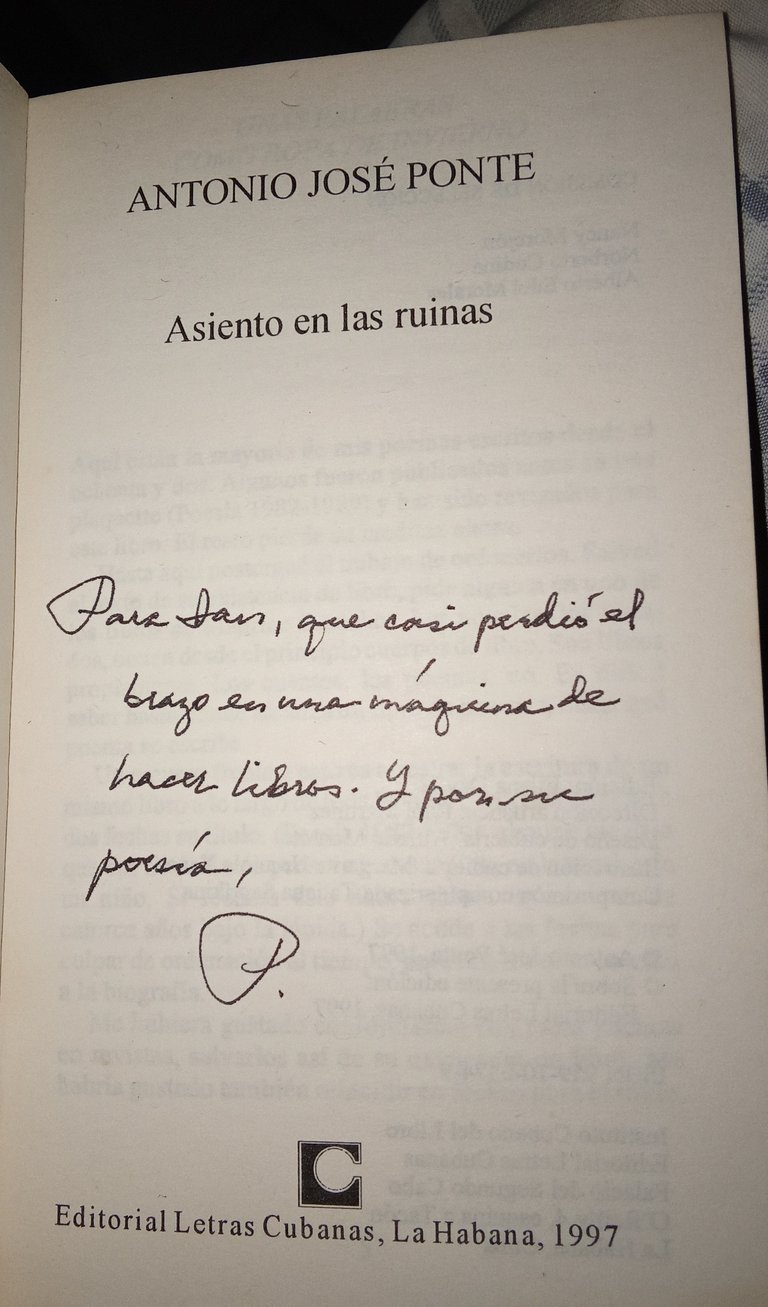 ANTONIO JOSÉ PONTE
Asiento en las ruinas
Para , que casi perdió el
brazo en una máquina de
hacer libros. Y por su
poesía,
P.
Editorial Letras Cubanas, La Habana, 1997